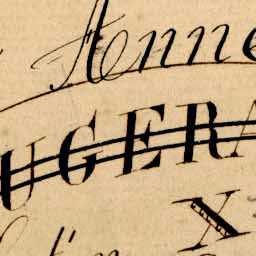 Anne
UGERA
X